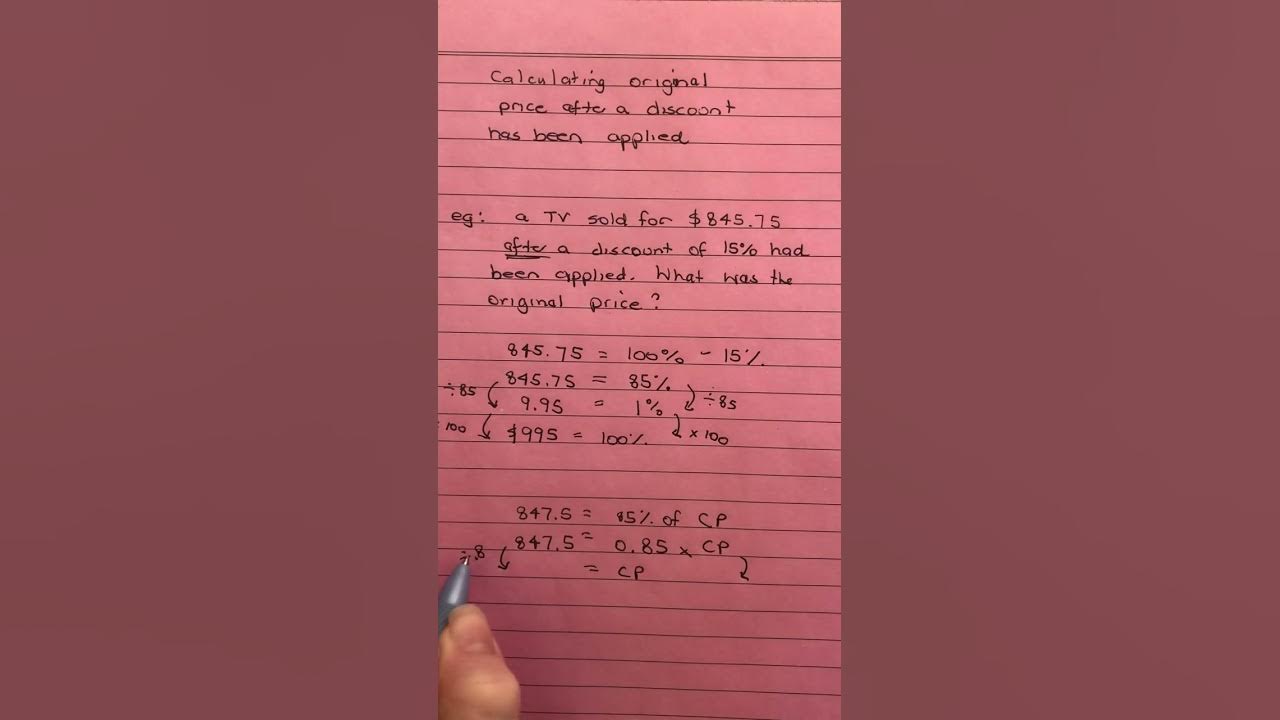 Calculating original
price after a discount
has been applied
eg: a TV sold for $845.75
after a discount of 15% had
been applied. What was the
original price?
845.75 = 100% - 15%
÷85 845.75 = 85% ÷85
9.95 = 1%
100 $995 = 100% × 100
847.5 = 85% of CP
847.5 = 0.85 × CP
÷.8 = CP